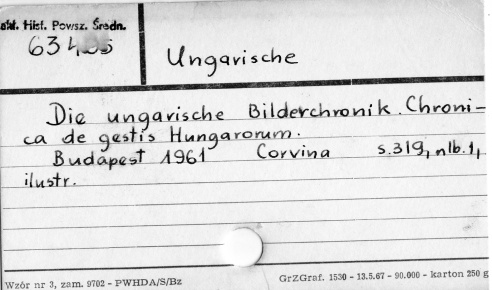 Zakł. Hist. Powsz. Średn.
Ungarische
Die ungarische Bilderchronik. Chroni-
ca de gestis Hungarorum.
Budapest 1961 Corvina s.319, nlb.1,
ilustr.
Wzór nr 3, zam. 9702 - PWHDA/S/Bz
GrZGraf. 1530 - 13.5.67 - 90.000 - karton 250 g